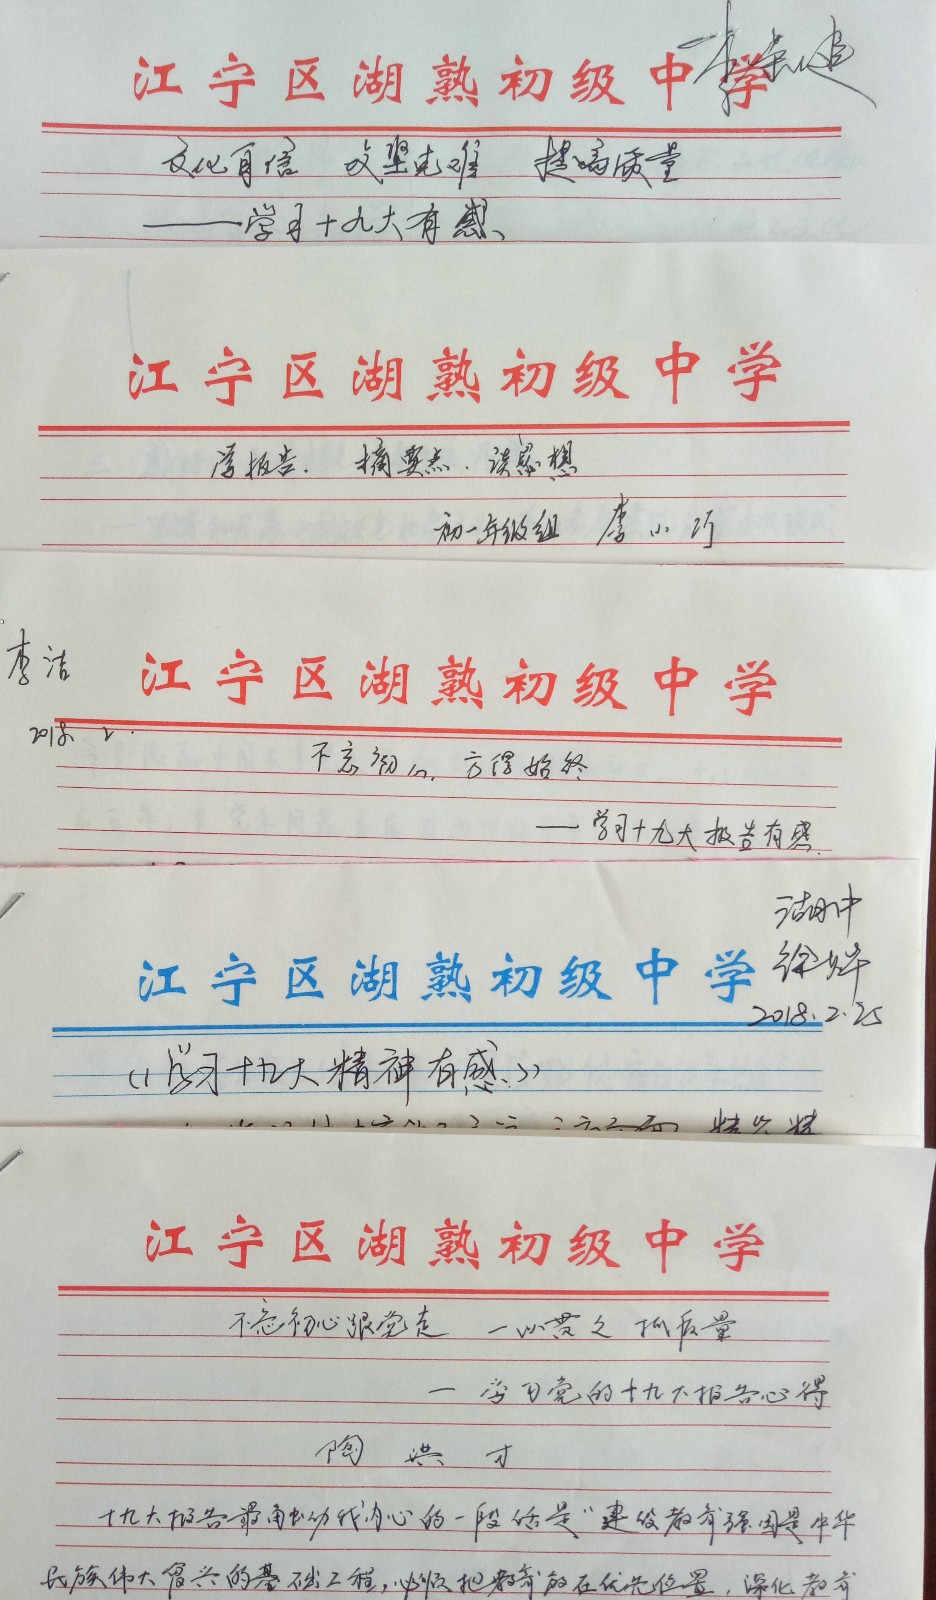 江宁区湖熟初级中学
文化自信 攻坚克难 提高质量
——学习十九大有感
江宁区湖熟初级中学
学报告、摘要点、谈感想
初一年级组 李小巧
李洁
江宁区湖熟初级中学
2018.2.
不忘初心，方得始终
——学习十九大报告有感
湖中
徐
江宁区湖熟初级中学
2018.2.25
《学习十九大精神有感》
江宁区湖熟初级中学
不忘初心跟党走 一以贯之抓质量
—学习党的十九大报告心得
陶洪才
十九大报告最触动我内心的一段话是“建设教育强国是中华
民族伟大复兴的基础工程，必须把教育放在优先位置，深化教育